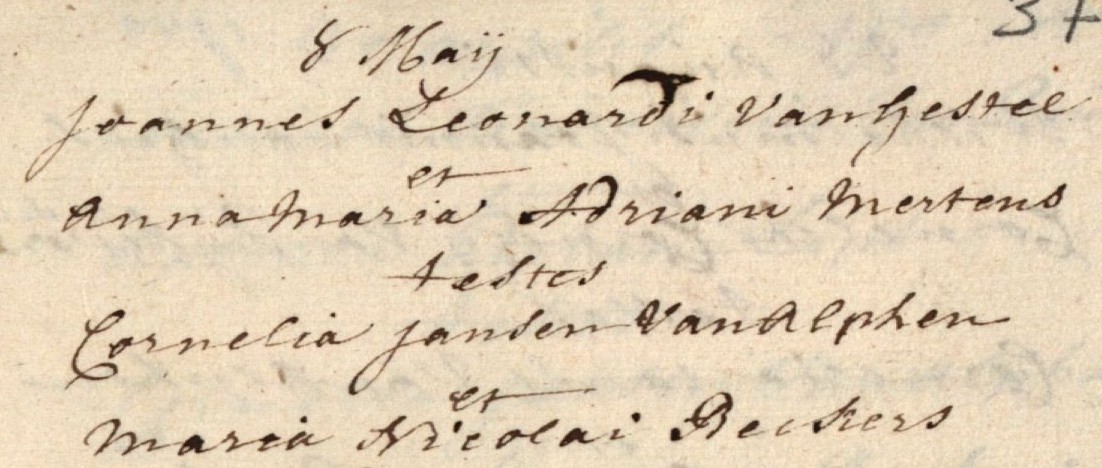 37
8 Maÿ
Joannes Leonardi Van Gestel
et
Anna Maria Adriani Mertens
testes
Cornelia Jansen Van Alphen
et
Maria Nicolai Beckers